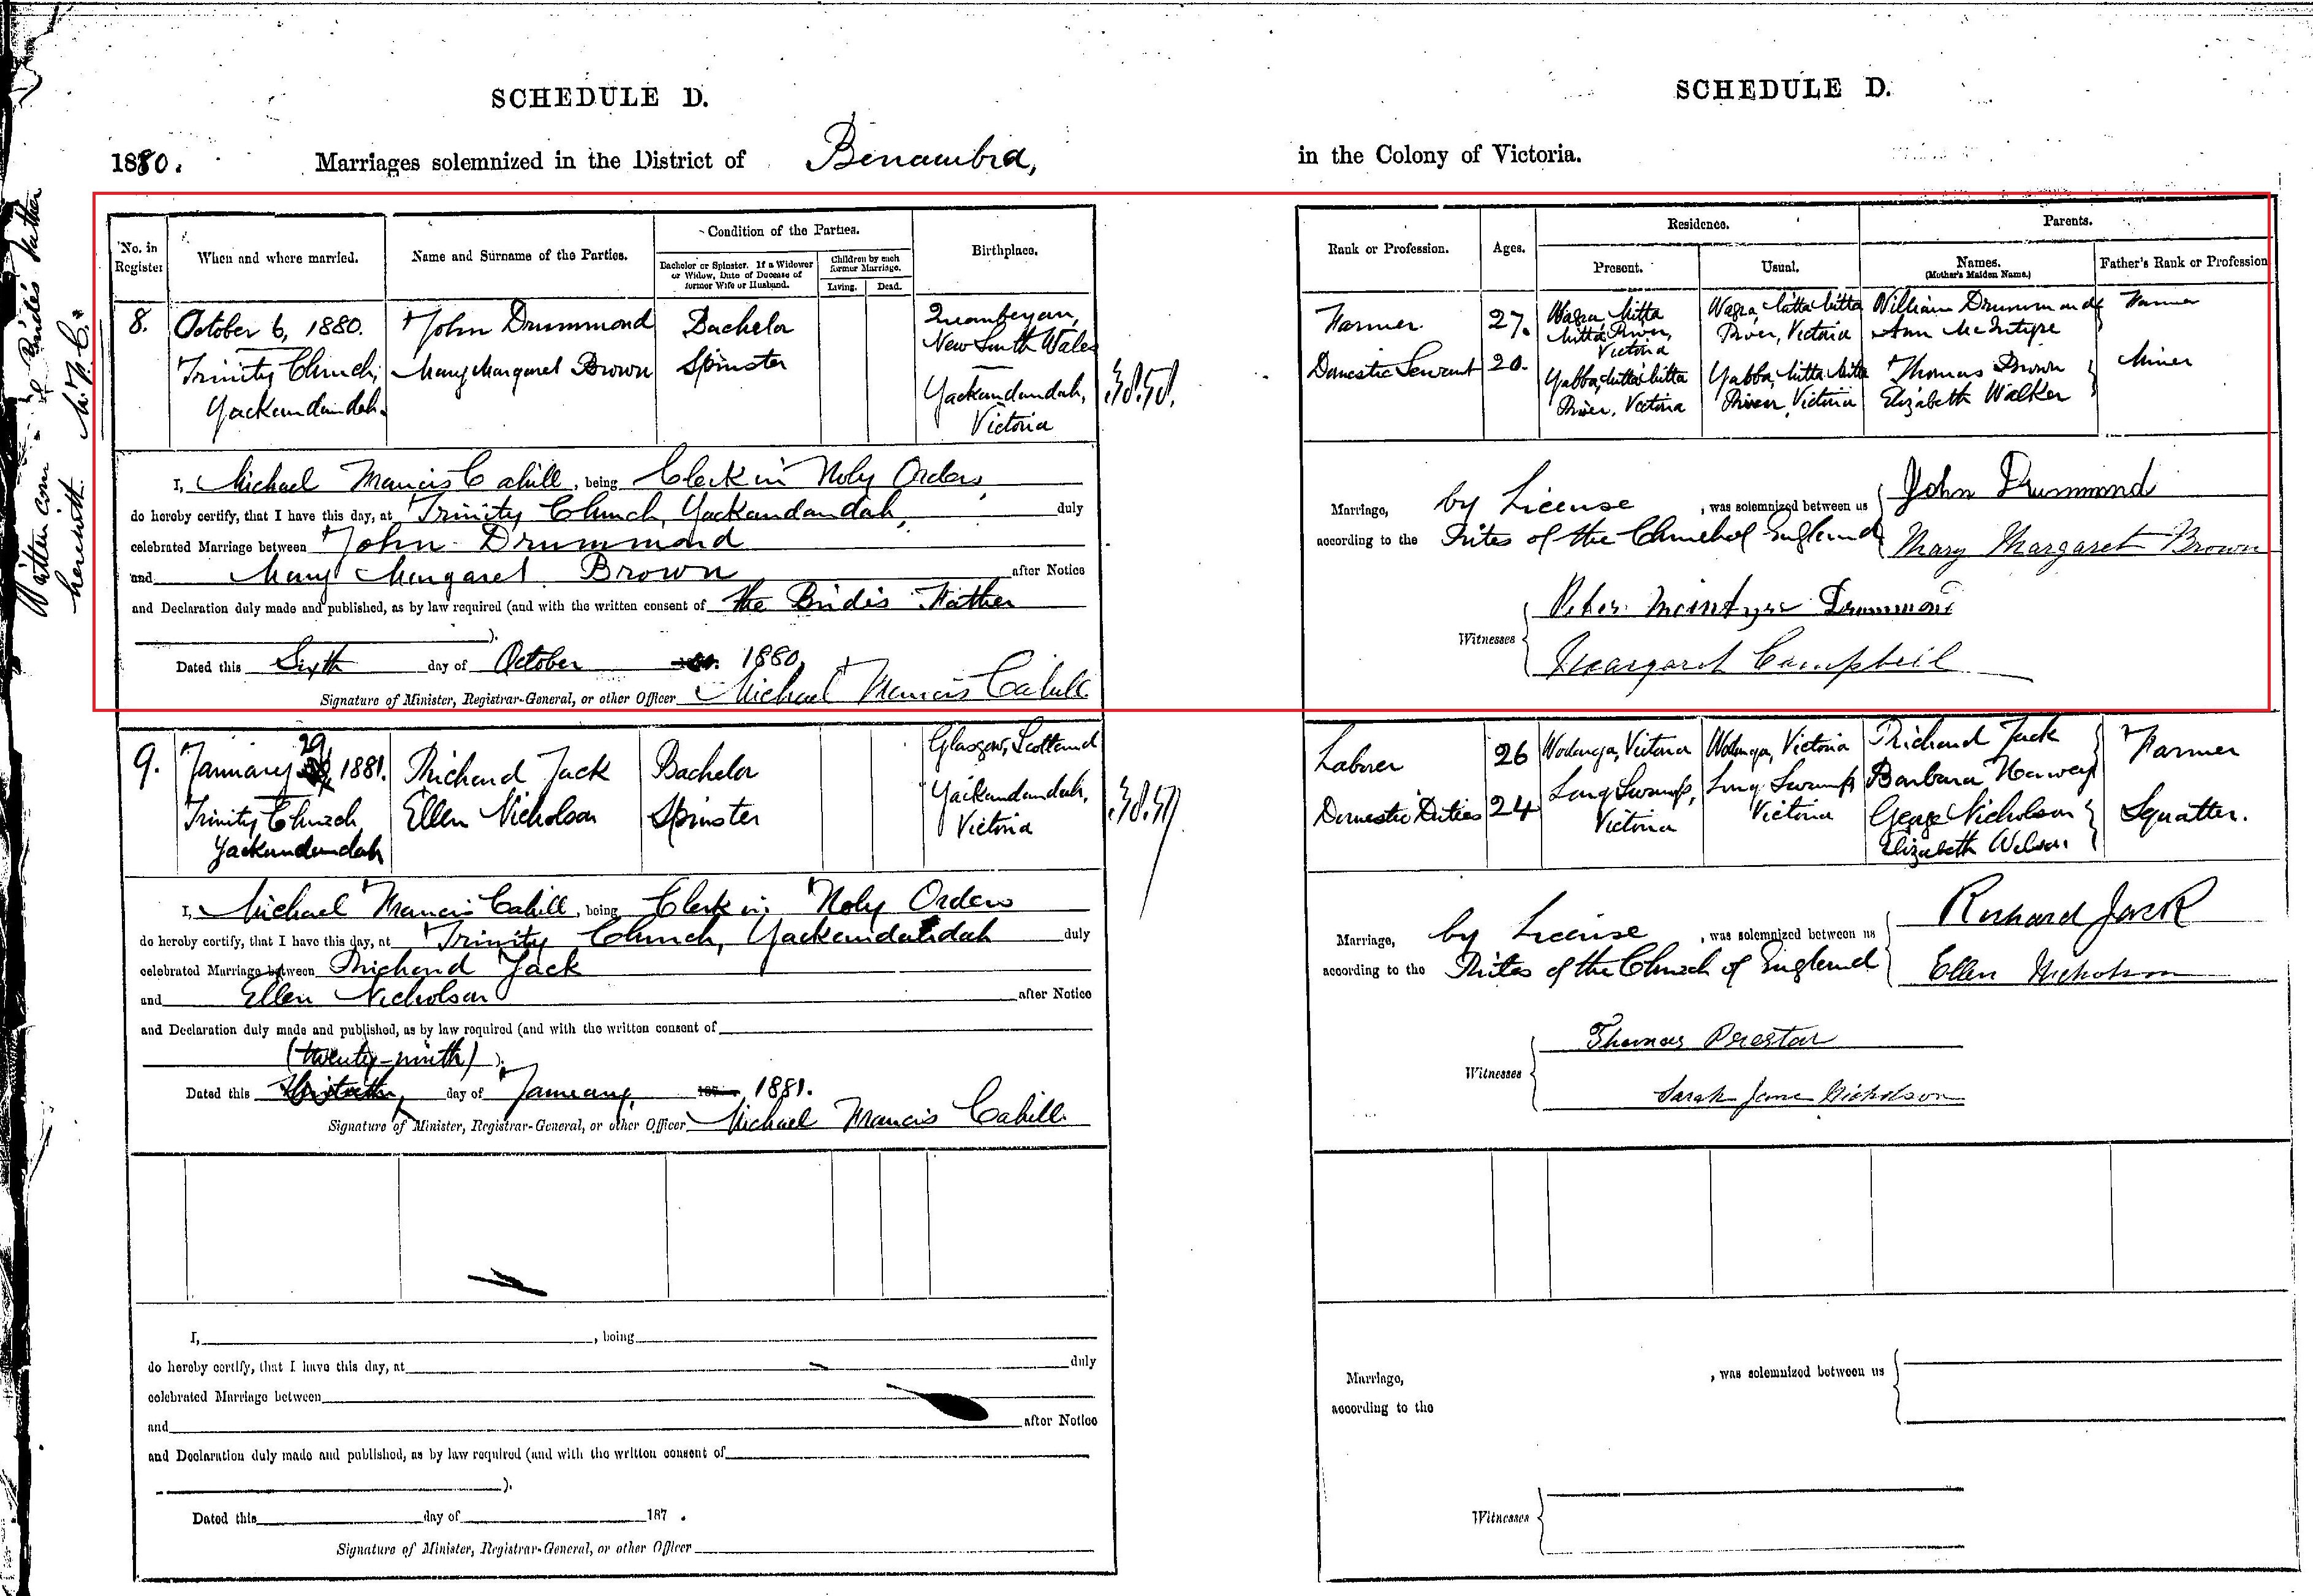 SCHEDULE D.
SCHEDULE D.
1880. Marriages solemnized in the District of Benambra, in the Colony of Victoria.
Written consent of Bride's Father
herewith. M.F.C.
No. in Register
When and where married.
Name and Surname of the Parties.
Condition of the Parties.
Bachelor or Spinster. If a Widower or Widow, Date of Decease of former Wife or Husband.
Children by each former Marriage.
Living. Dead.
Birthplace.
Rank or Profession.
Ages.
Residence.
Present. Usual.
Parents.
Names. (Mother's Maiden Name.)
Father's Rank or Profession
8. October 6, 1880.
Trinity Church,
Yackandandah.
John Drummond
Mary Margaret Brown
Bachelor
Spinster
Queanbeyan,
New South Wales
Yackandandah,
Victoria
Farmer
Domestic Servant
27.
20.
Wagra, Mitta
Mitta River,
Victoria
Yabba, Mitta Mitta
River, Victoria
Wagra, Mitta Mitta
River, Victoria
Yabba, Mitta Mitta
River, Victoria
William Drummond
Ann McIntyre
Thomas Brown
Elizabeth Walker
Farmer
Miner
I, Michael Francis Cahill, being Clerk in Holy Orders,
do hereby certify, that I have this day, at Trinity Church, Yackandandah, duly
celebrated Marriage between John Drummond
and Mary Margaret Brown after Notice
and Declaration duly made and published, as by law required (and with the written consent of the Bride's Father
).
Dated this Sixth day of October 1880.
Signature of Minister, Registrar-General, or other Officer Michael Francis Cahill
Marriage, by License, was solemnized between us
according to the Rites of the Church of England
John Drummond
Mary Margaret Brown
Witnesses
Peter McIntyre Drummond
Margaret Campbell
9. January 29, 1881.
Trinity Church
Yackandandah
Richard Jack
Ellen Nicholson
Bachelor
Spinster
Glasgow, Scotland
Yackandandah,
Victoria
Laborer
Domestic Duties
26
24
Wodonga, Victoria
Long Swamp,
Victoria
Wodonga, Victoria
Long Swamp
Victoria
Richard Jack
Barbara Harvey
George Nicholson
Elizabeth Wilson
Farmer
Squatter.
I, Michael Francis Cahill, being Clerk in Holy Orders
do hereby certify, that I have this day, at Trinity Church, Yackandandah duly
celebrated Marriage between Richard Jack
and Ellen Nicholson after Notice
and Declaration duly made and published, as by law required (and with the written consent of
(twenty-ninth) ).
Dated this day of January, 1881.
Signature of Minister, Registrar-General, or other Officer Michael Francis Cahill
Marriage, by License, was solemnized between us
according to the Rites of the Church of England
Richard Jack
Ellen Nicholson
Witnesses
Thomas Preston
Sarah Jane Nicholson
I, , being
do hereby certify, that I have this day, at duly
celebrated Marriage between
and after Notice
and Declaration duly made and published, as by law required (and with the written consent of
).
Dated this day of 187 .
Signature of Minister, Registrar-General, or other Officer
Marriage, , was solemnized between us
according to the
Witnesses